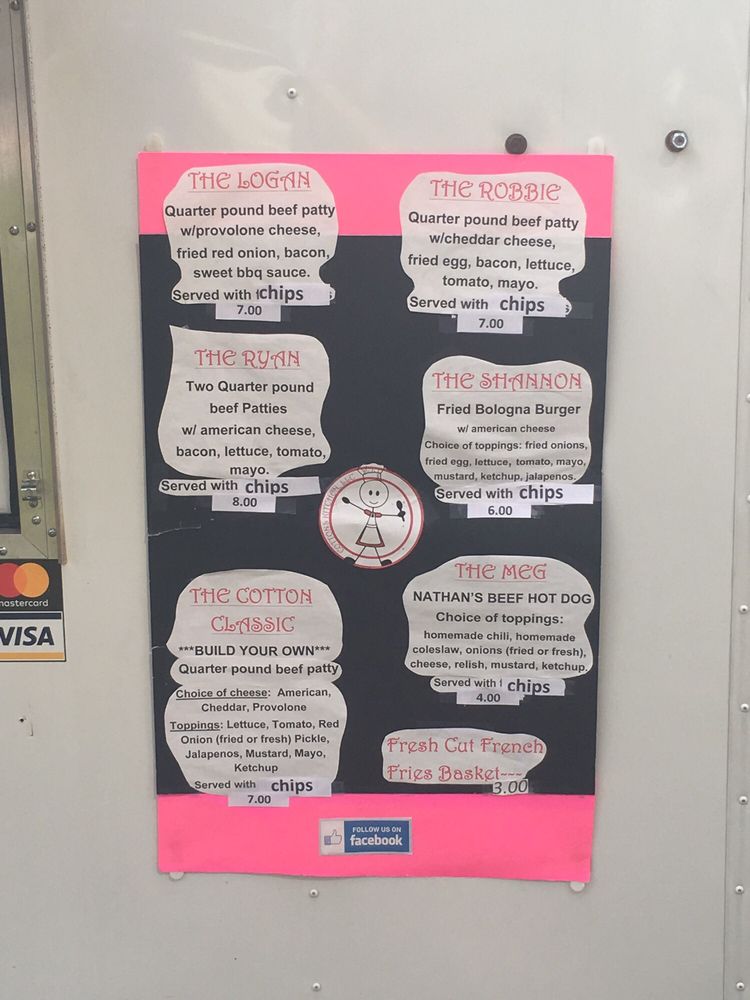 THE LOGAN
Quarter pound beef patty
w/provolone cheese,
fried red onion, bacon,
sweet bbq sauce.
Served with chips
7.00
THE ROBBIE
Quarter pound beef patty
w/cheddar cheese,
fried egg, bacon, lettuce,
tomato, mayo.
Served with chips
7.00
THE RYAN
Two Quarter pound
beef Patties
w/ american cheese,
bacon, lettuce, tomato,
mayo.
Served with chips
8.00
THE SHANNON
Fried Bologna Burger
w/ american cheese
Choice of toppings: fried onions,
fried egg, lettuce, tomato, mayo,
mustard, ketchup, jalapenos.
Served with chips
6.00
THE COTTON
CLASSIC
***BUILD YOUR OWN***
Quarter pound beef patty
Choice of cheese: American,
Cheddar, Provolone
Toppings: Lettuce, Tomato, Red
Onion (fried or fresh) Pickle,
Jalapenos, Mustard, Mayo,
Ketchup
Served with chips
7.00
THE MEG
NATHAN'S BEEF HOT DOG
Choice of toppings:
homemade chili, homemade
coleslaw, onions (fried or fresh),
cheese, relish, mustard, ketchup.
Served with chips
4.00
Fresh Cut French
Fries Basket---
3.00
FOLLOW US ON
facebook
mastercard
VISA